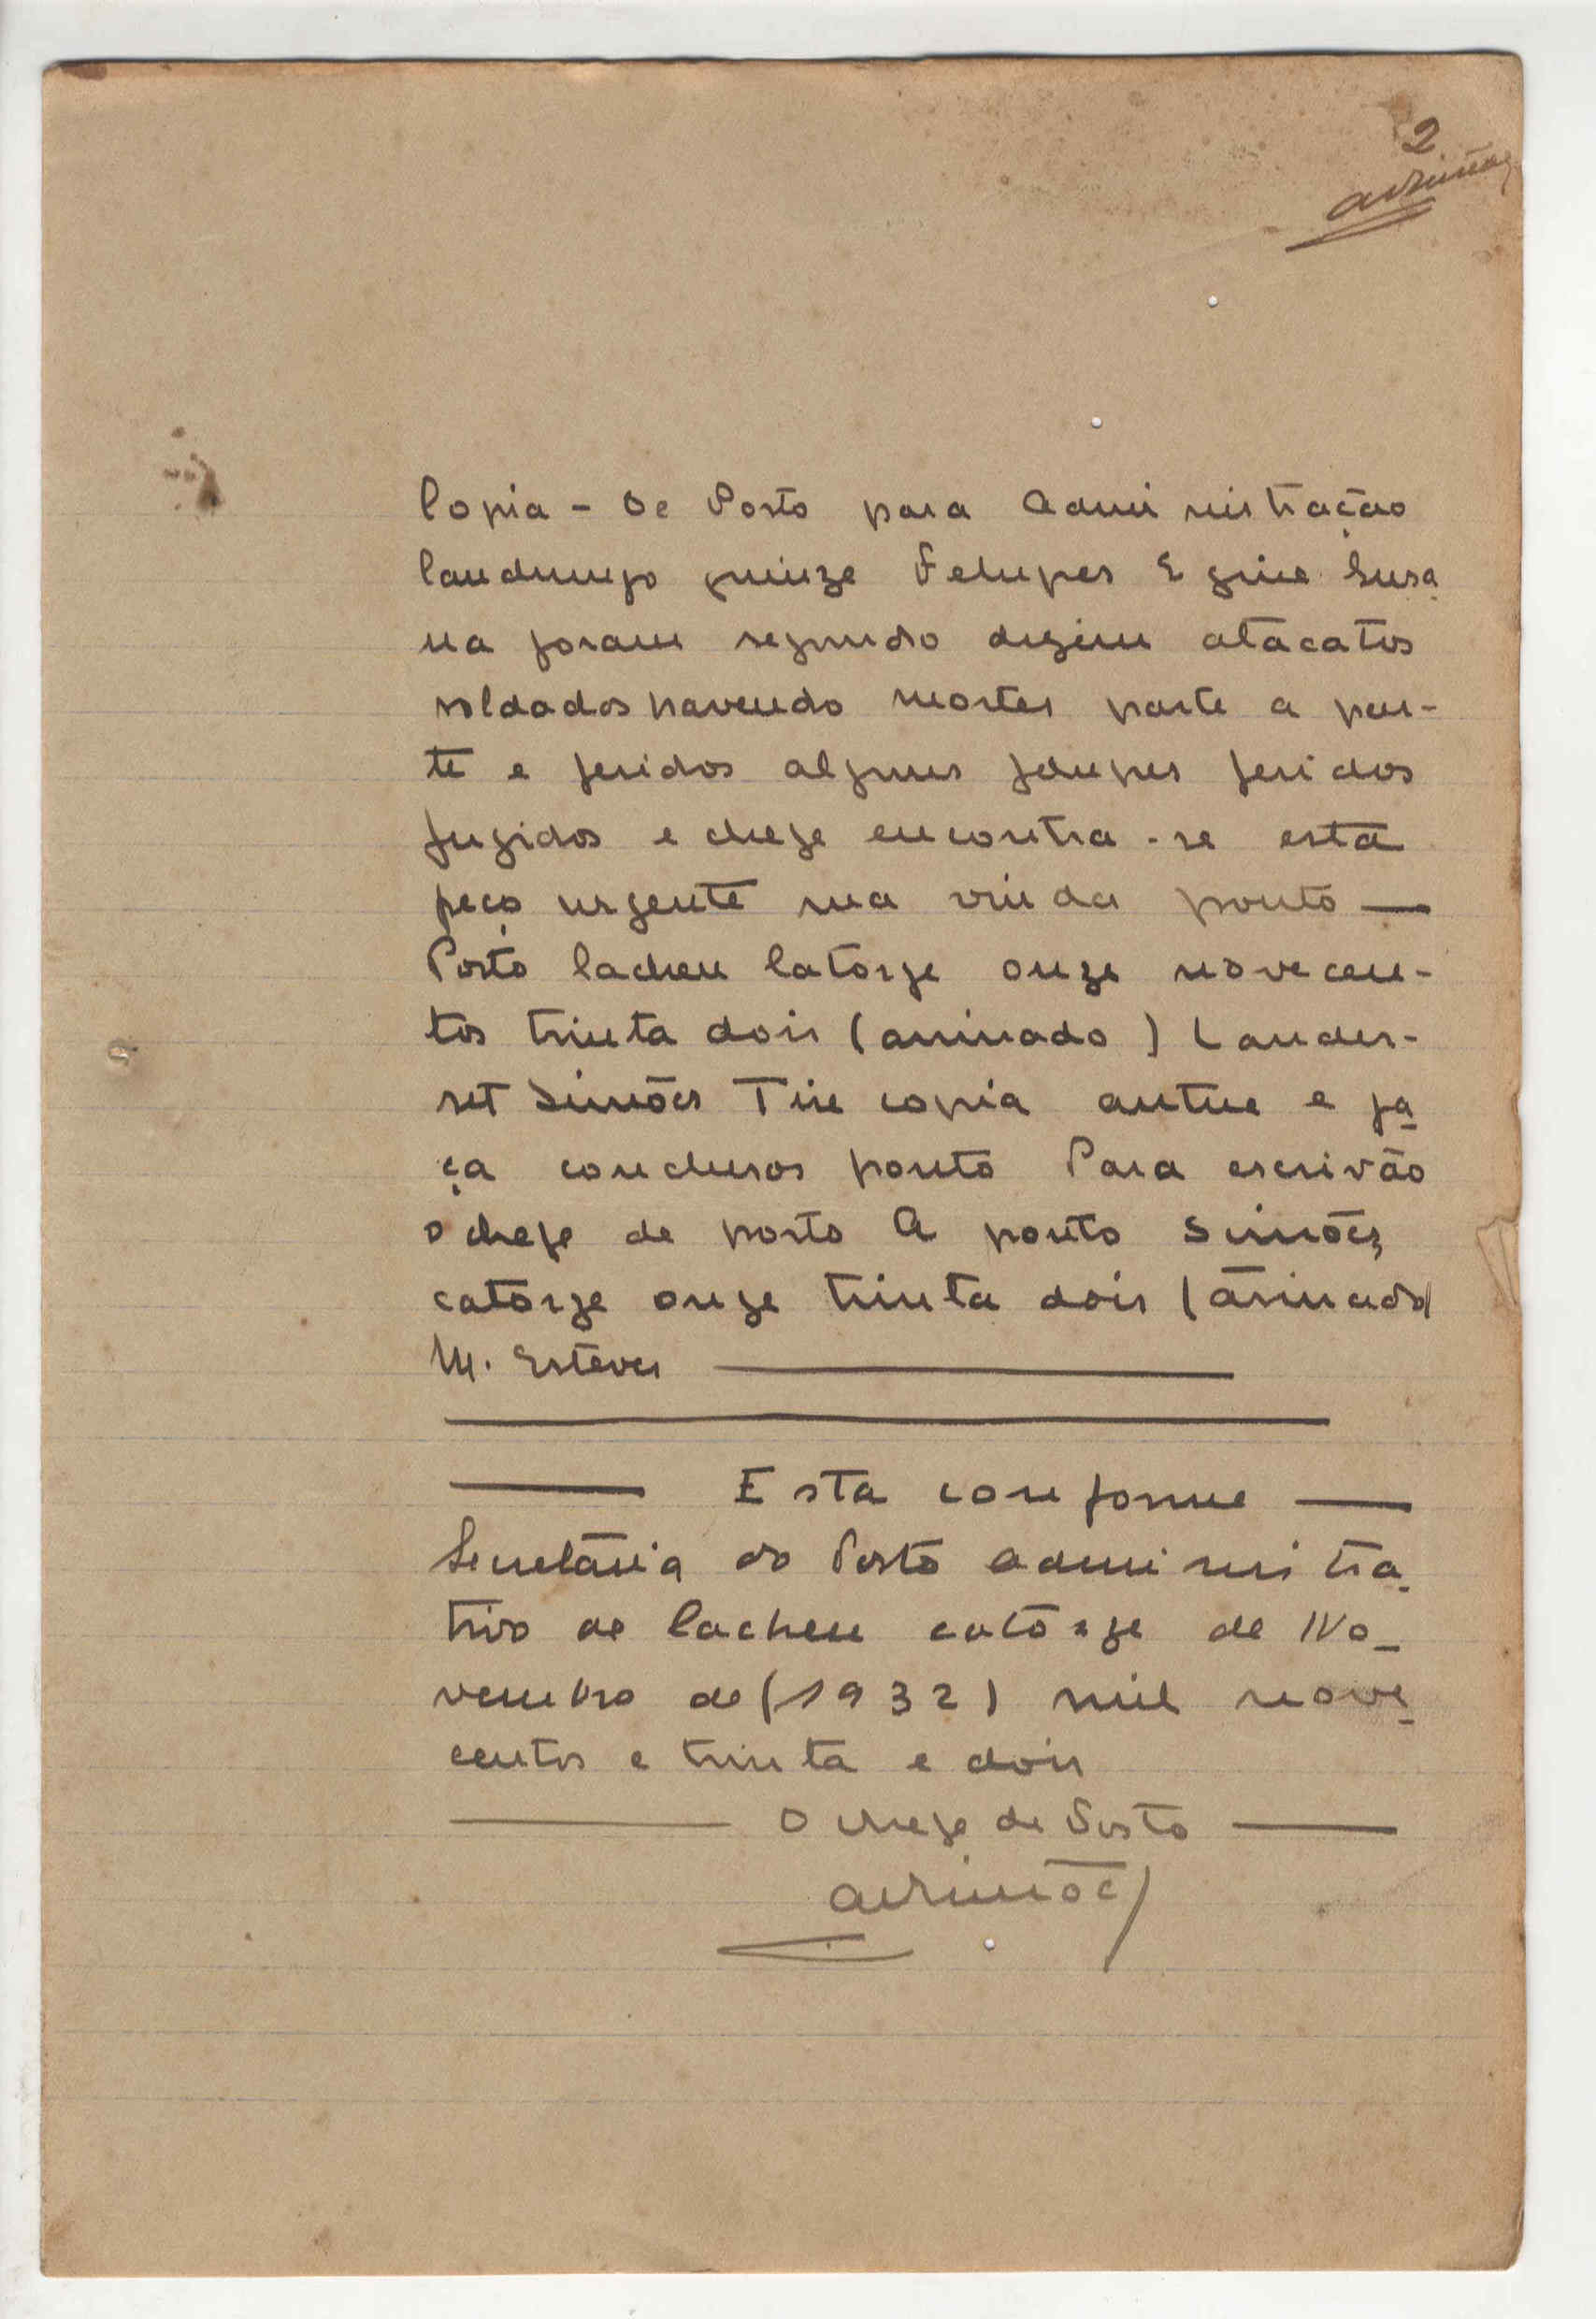 2
Copia - De Posto para Administração
Candungo quinze Felupes Egine Susa
na foram segundo dizem atacatos
soldados havendo mortes parte a par-
te e feridos alguns felupes feridos
fugidos e chefe encontra-se esta
peço urgente sua vinda ponto —
Posto Cacheu Catorze onze novecen-
tos trinta dois (assinado) Lander-
set Simões Tire copia autue e fa
ça conclusos ponto Para escrivão
o chefe de posto A ponto Simões
catorze onze trinta dois (assinado)
M. Esteves
Esta conforme
Secretária do Posto Administra
tivo de Cacheu catorze de No-
vembro de (1932) mil nove
centos e trinta e dois
O chefe de Posto